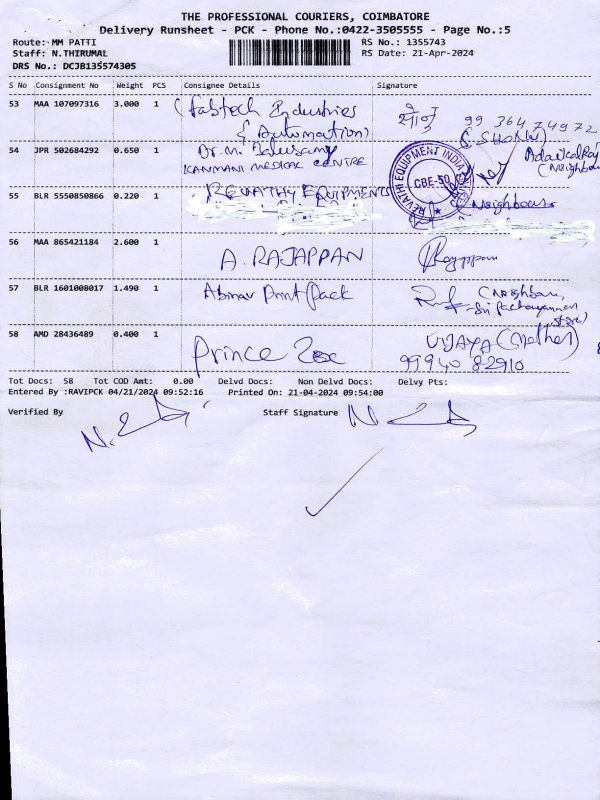 THE PROFESSIONAL COURIERS, COIMBATORE
Delivery Runsheet - PCK - Phone No.:0422-3505555 - Page No.:5
Route: MM PATTI
RS No.: 1355743
Staff: N.THIRUMAL
RS Date: 21-Apr-2024
DRS No.: DCJB135574305
S No Consignment No Weight PCS Consignee Details Signature
53 MAA 107097316 3.000 1 (Fabtech Industries
& Automation)
99 364 74972
54 JPR 502684292 0.650 1 Dr. M. Balusamy
KANMANI MEDICAL CENTRE
(Neighbour
REVATHI EQUIPMENT INDIA LIMITED
CBE-50
55 BLR 5550850866 0.220 1 REVATHY EQUIPMENTS
(Neighbours
56 MAA 865421184 2.600 1 A. RAJAPPAN Rajappan
57 BLR 1601008017 1.490 1 Abinav Print Pack (Neighbour,
Sri
58 AMD 28436489 0.400 1 Prince VIJAYA (Mother)
99940 82910
Tot Docs: 58 Tot COD Amt: 0.00 Delvd Docs: Non Delvd Docs: Delvy Pts:
Entered By :RAVIPCK 04/21/2024 09:52:16 Printed On: 21-04-2024 09:54:00
Verified By Staff Signature